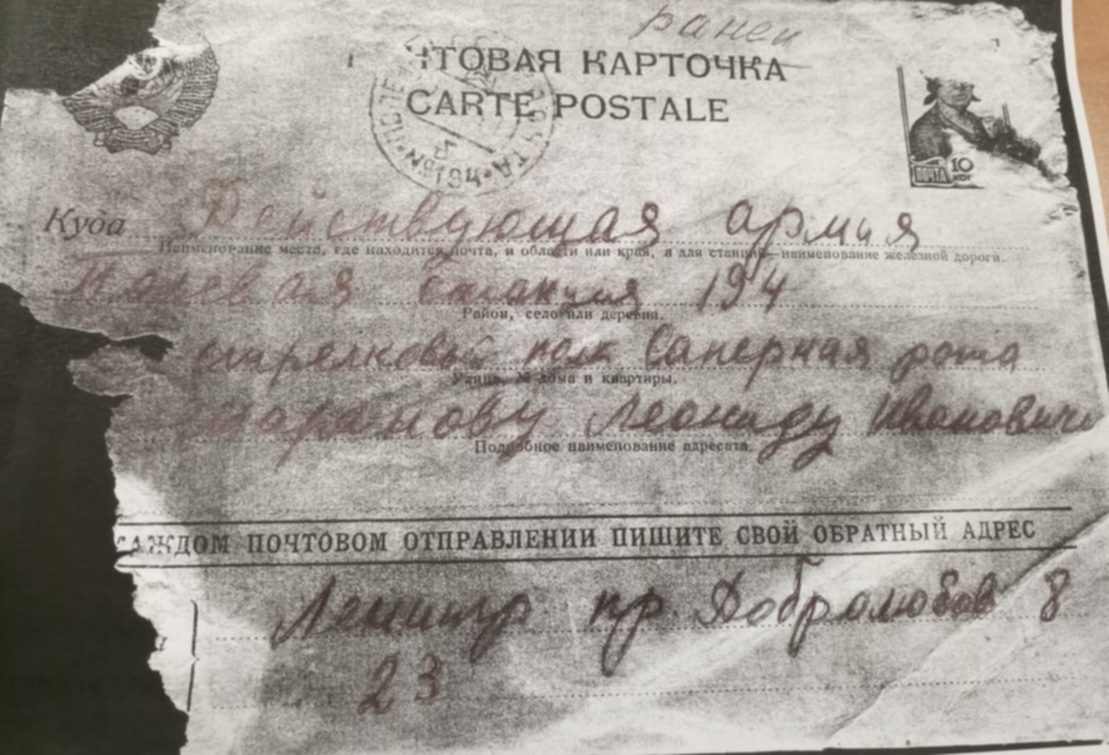 ранен
ЧТОВАЯ КАРТОЧКА
CARTE POSTALE
ПОЧТА
10
КОП
№194
Куда Действующая армия
Наименование места, где находится почта, и области или края, а для станции—наименование железной дороги.
Полевая станция 194
Район, село или деревня.
стрелковый полк Саперная рота
Улица, № дома и квартиры.
Леониду Ивановичу
Подробное наименование адресата.
КАЖДОМ ПОЧТОВОМ ОТПРАВЛЕНИИ ПИШИТЕ СВОЙ ОБРАТНЫЙ АДРЕС
пр. Добролюбов 8
23